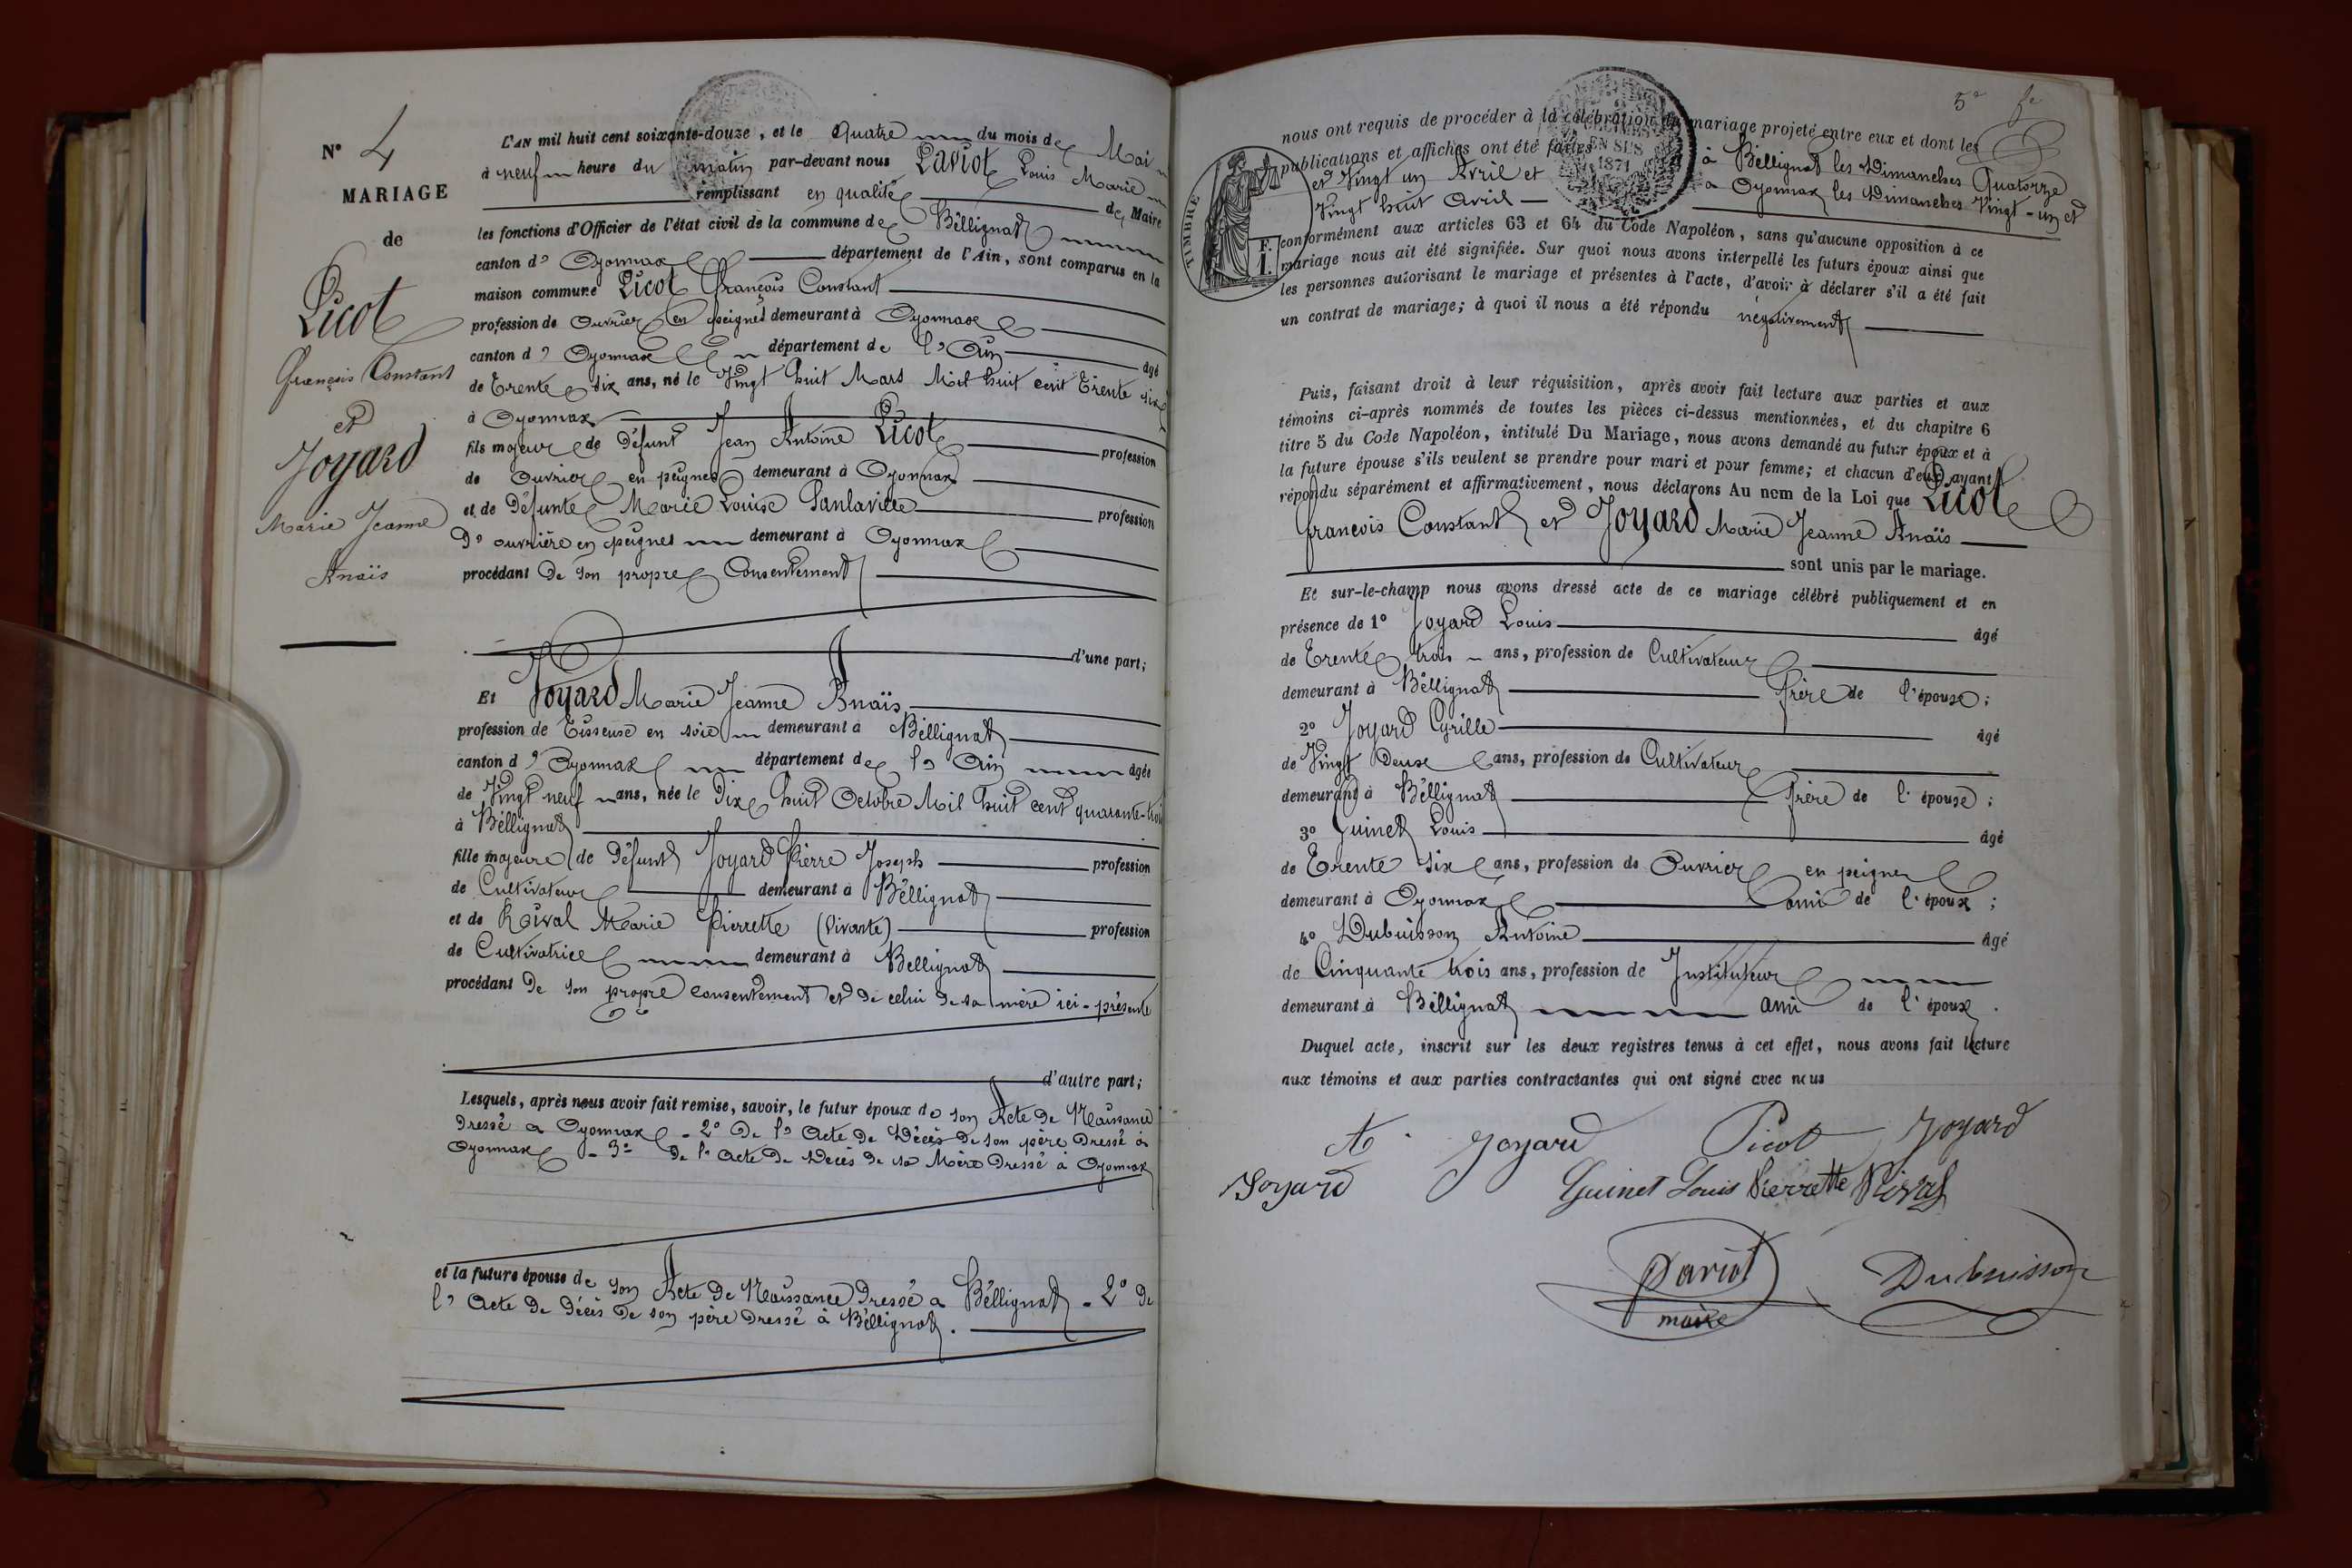 N° 4
MARIAGE
de
Picot
François Constant
et
Joyard
Marie Jeanne
Anaïs
L'AN mil huit cent soixante-douze, et le Quatre du mois de Mai
à neuf heure du matin par-devant nous Pariot Louis Marie
remplissant en qualité de Maire
les fonctions d'Officier de l'état civil de la commune de Béllignat
canton d' Oyonnax département de l'Ain, sont comparus en la
maison commune Picot François Constant
profession de Ouvrier en peignes demeurant à Oyonnax
canton d' Oyonnax département de l' Ain âgé
de Trente six ans, né le Vingt huit Mars Mil huit cent Trente six
à Oyonnax
fils majeur de Défunt Jean Antoine Picot profession
de Ouvrier en peignes demeurant à Oyonnax
et de Défunte Marie Louise Sanlaville profession
d' ouvrière en peignes demeurant à Oyonnax
procédant De son propre Consentement
d'une part;
Et Joyard Marie Jeanne Anaïs
profession de Tisseuse en soie demeurant à Béllignat
canton d' Oyonnax département de l' Ain âgée
de Vingt neuf ans, née le Dix huit Octobre Mil huit cent quarante-trois
à Béllignat
fille majeure de Défunt Joyard Pierre Joseph profession
de Cultivateur demeurant à Béllignat
et de Roival Marie Pierrette (Vivante) profession
de Cultivatrice demeurant à Bellignat
procédant De son propre consentement et de celui de sa mère ici-présente
d'autre part;
Lesquels, après nous avoir fait remise, savoir, le futur époux de son Acte de Naissance
Dressé a Oyonnax - 2° De l' Acte de Décès de son père Dressé à
Oyonnax - 3° De l' Acte de Décès de sa Mère Dressé à Oyonnax
et la future épouse de son Acte de Naissance Dressé a Béllignat - 2° De
l' Acte de Décès de son père Dressé à Béllignat.
5e
TIMBRE
F.
I.
EN SUS
1871
nous ont requis de procéder à la célébration du mariage projeté entre eux et dont les
publications et affiches ont été faites à Béllignat les Dimanches Quatorze
et Vingt un Avril et a Oyonnax les Dimanches Vingt-un et
Vingt huit Avril
conformément aux articles 63 et 64 du Code Napoléon, sans qu'aucune opposition à ce
mariage nous ait été signifiée. Sur quoi nous avons interpellé les futurs époux ainsi que
les personnes autorisant le mariage et présentes à l'acte, d'avoir à déclarer s'il a été fait
un contrat de mariage; à quoi il nous a été répondu négativement
Puis, faisant droit à leur réquisition, après avoir fait lecture aux parties et aux
témoins ci-après nommés de toutes les pièces ci-dessus mentionnées, et du chapitre 6
titre 5 du Code Napoléon, intitulé Du Mariage, nous avons demandé au futur époux et à
la future épouse s'ils veulent se prendre pour mari et pour femme; et chacun d'eux ayant
répondu séparément et affirmativement, nous déclarons Au nom de la Loi que Picot
françois Constant et Joyard Marie Jeanne Anaïs
sont unis par le mariage.
Et sur-le-champ nous avons dressé acte de ce mariage célébré publiquement et en
présence de 1° Joyard Louis âgé
de Trente trois ans, profession de Cultivateur
demeurant à Béllignat frère de l'épouse;
2° Joyard Cyrille âgé
de Vingt Deux ans, profession de Cultivateur
demeurant à Béllignat frère de l'épouse;
3° Guinet Louis âgé
de Trente six ans, profession de Ouvrier en peignes
demeurant à Oyonnax ami de l'époux;
4° Dubuisson Antoine âgé
de Cinquante trois ans, profession de Instituteur
demeurant à Béllignat ami de l'époux.
Duquel acte, inscrit sur les deux registres tenus à cet effet, nous avons fait lecture
aux témoins et aux parties contractantes qui ont signé avec nous
Joyard Picot Joyard
Joyard Guinet Louis Pierrette
Pariot Dubuisson
maire